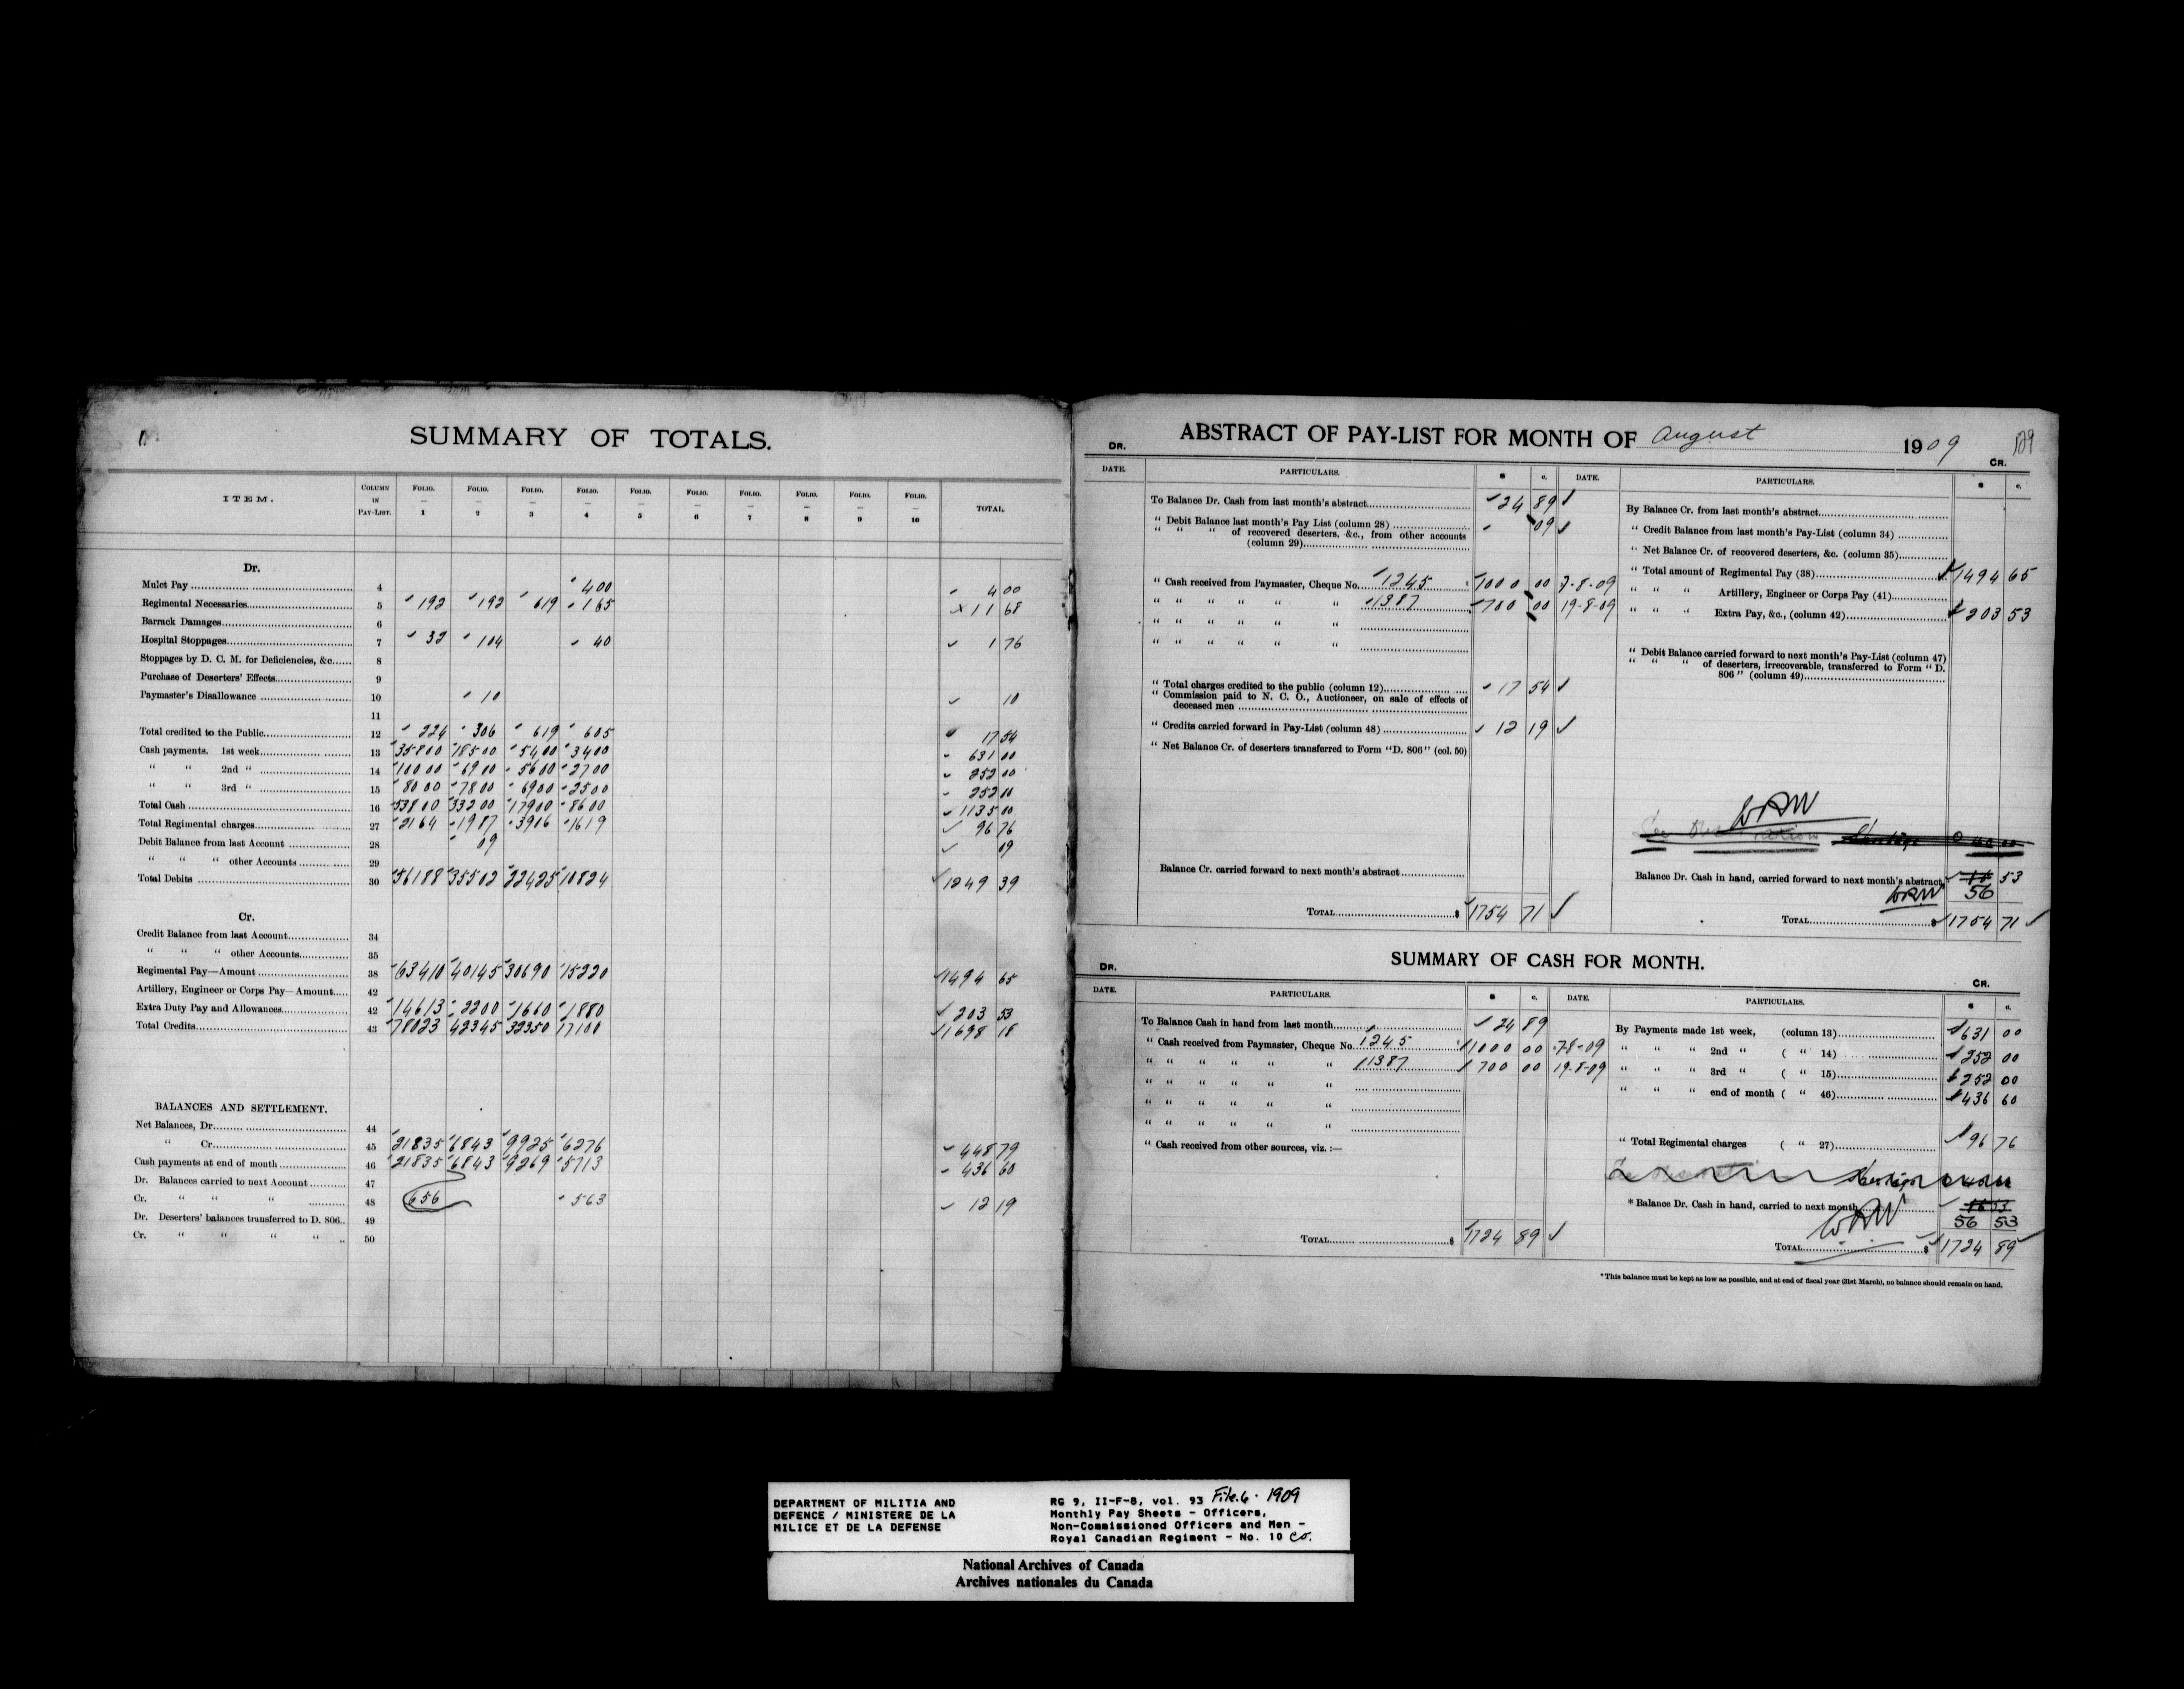 SUMMARY OF TOTALS.
ITEM. COLUMN IN PAY-LIST. FOLIO. – 1 FOLIO. – 2 FOLIO. – 3 FOLIO. – 4 FOLIO. – 5 FOLIO. – 6 FOLIO. – 7 FOLIO. – 8 FOLIO. – 9 FOLIO. – 10 TOTAL.
Dr.
Mulct Pay 4 400 4 00
Regimental Necessaries 5 192 192 619 165 11 68
Barrack Damages 6
Hospital Stoppages 7 32 104 40 1 76
Stoppages by D. C. M. for Deficiencies, &c. 8
Purchase of Deserters' Effects 9
Paymaster's Disallowance 10 10 10
11
Total credited to the Public 12 224 306 619 605 17 54
Cash payments. 1st week 13 35800 18500 5400 3400 631 00
" " 2nd " 14 10000 6900 5600 2700 252 00
" " 3rd " 15 8000 7800 6900 2500 252 00
Total Cash 16 53800 33200 17900 8600 1135 00
Total Regimental charges 27 2164 1987 3906 1619 96 76
Debit Balance from last Account 28 09 09
" " " other Accounts 29
Total Debits 30 56188 35502 22425 10824 1249 39
Cr.
Credit Balance from last Account 34
" " " other Accounts 35
Regimental Pay—Amount 38 63410 40145 30690 15220 1494 65
Artillery, Engineer or Corps Pay—Amount 42
Extra Duty Pay and Allowances 42 14613 2200 1660 1880 203 53
Total Credits 43 78023 42345 32350 17100 1698 18
BALANCES AND SETTLEMENT.
Net Balances, Dr. 44
" Cr. 45 21835 6843 9925 6276 448 79
Cash payments at end of month 46 21835 6843 9269 5713 436 60
Dr. Balances carried to next Account 47
Cr. " " " 48 656 563 12 19
Dr. Deserters' balances transferred to D. 806 49
Cr. " " " " 50
ABSTRACT OF PAY-LIST FOR MONTH OF August 1909
129
DR. CR.
DATE. PARTICULARS. $ c. DATE. PARTICULARS. $ c.
To Balance Dr. Cash from last month's abstract 24 89
" Debit Balance last month's Pay List (column 28) 09
" " " of recovered deserters, &c., from other accounts
(column 29)
" Cash received from Paymaster, Cheque No. 1245 1000 00 7-8-09
" " " " " " 1387 700 00 19-8-09
" " " " " "
" " " " " "
" Total charges credited to the public (column 12) 17 54
" Commission paid to N. C. O., Auctioneer, on sale of effects of
deceased men
" Credits carried forward in Pay-List (column 48) 12 19
" Net Balance Cr. of deserters transferred to Form "D. 806" (col. 50)
Balance Cr. carried forward to next month's abstract
TOTAL $ 1754 71
By Balance Cr. from last month's abstract
" Credit Balance from last month's Pay-List (column 34)
" Net Balance Cr. of recovered deserters, &c. (column 35)
" Total amount of Regimental Pay (38) 1494 65
" " " Artillery, Engineer or Corps Pay (41)
" " " Extra Pay, &c., (column 42) 203 53
" Debit Balance carried forward to next month's Pay-List (column 47)
" " " of deserters, irrecoverable, transferred to Form "D.
806" (column 49)
WRW
Balance Dr. Cash in hand, carried forward to next month's abstract 16 53
WRW 56
TOTAL $ 1754 71
SUMMARY OF CASH FOR MONTH.
DR. CR.
DATE. PARTICULARS. $ c. DATE. PARTICULARS. $ c.
To Balance Cash in hand from last month 24 89
" Cash received from Paymaster, Cheque No. 1245 1000 00 7-8-09
" " " " " " 1387 700 00 19-8-09
" " " " " "
" " " " " "
" " " " " "
" Cash received from other sources, viz.:—
TOTAL $ 1724 89
By Payments made 1st week, (column 13) 631 00
" " " 2nd " ( " 14) 252 00
" " " 3rd " ( " 15) 252 00
" " " end of month ( " 46) 436 60
" Total Regimental charges ( " 27) 96 76
* Balance Dr. Cash in hand, carried to next month 16 53
WRW 56 53
TOTAL $ 1724 89
* This balance must be kept as low as possible, and at end of fiscal year (31st March), no balance should remain on hand.
DEPARTMENT OF MILITIA AND
DEFENCE / MINISTERE DE LA
MILICE ET DE LA DEFENSE
RG 9, II-F-8, vol. 93 File.6. 1909
Monthly Pay Sheets - Officers,
Non-Commissioned Officers and Men -
Royal Canadian Regiment - No. 10 Co.
National Archives of Canada
Archives nationales du Canada